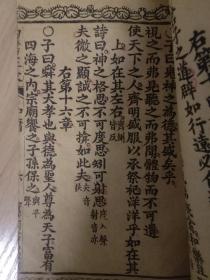 右第
辟如行遠必
子曰鬼神之為德其盛矣乎
視之而弗見聽之而弗聞體物而不可遺
使天下之人齊明盛服以承祭祀洋洋乎如在其
上如在其左右 齊側皆反
詩曰神之格思不可度思矧可射思 度入聲射音亦
夫微之顯誠之不可揜如此夫 夫音扶
右第十六章
子曰舜其大孝也與德為聖人尊為天子富有
四海之內宗廟饗之子孫保之 與平聲